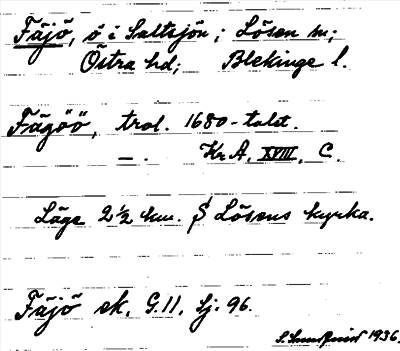 Fäjö, ö i Saltsjön; Lösen sn;
Östra hd; Blekinge l.
Fägöö, trol. 1680-talet.
— . Kr A, XVIII, C.
Läge 2 ½ km. S Lösens kyrka.
Fäjö ek. G. 11. Sj: 96.
S. Sundquist 1936.